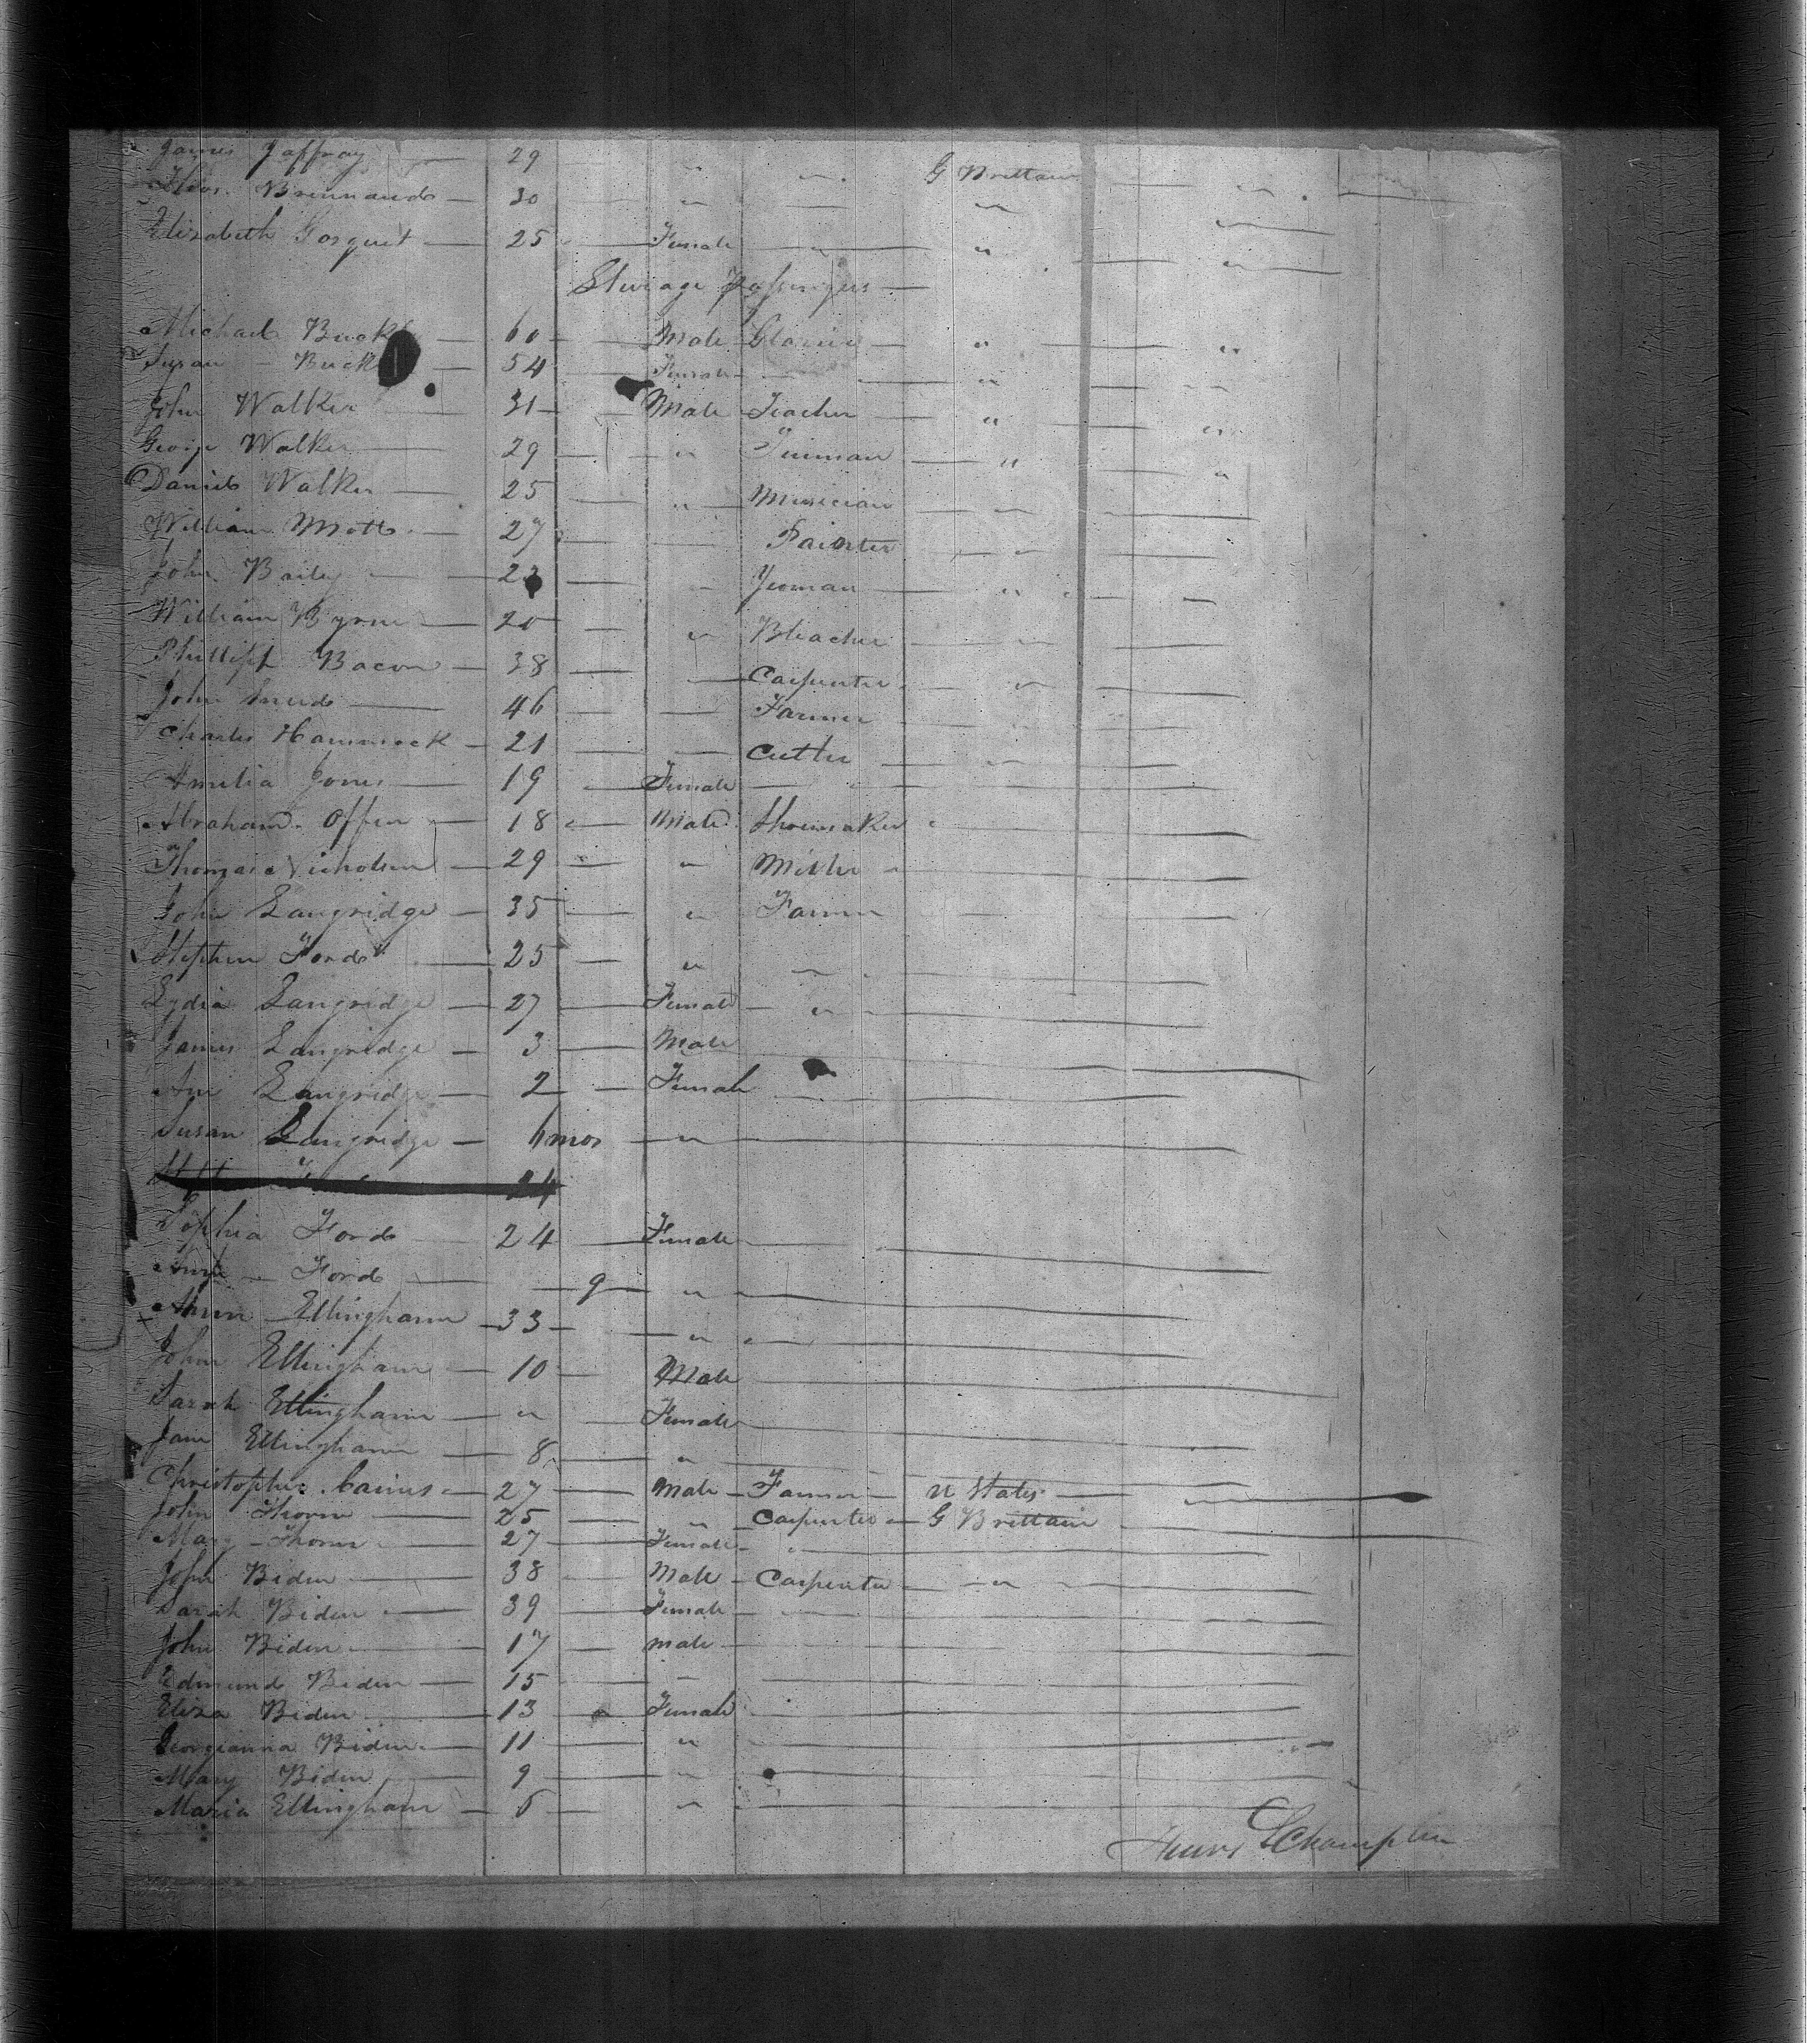 James Jaffray — 29 — " — " — G Brittain
Thos. Brunnands — 30 — " — "
Elizabeth Gosquet — 25 — Female — " — "
Steerage Passengers —
Michael Buck — 60 — Male — "
Susan Buck — 54 — Female — "
John Walker — 31 — Male Teacher "
George Walker — 29 — " Tinman — "
Daniel Walker — 25 — " Musician — "
William Mott — 27 — Painter — "
John Baily — 23 — " Yeoman — "
William Byrne — 20 — " Bleacher
Phillipp Bacon — 38 — " Carpenter — "
John Sneed — 46 — Farmer
Charles Hammock — 21 — Cutler — "
Amelia Jones — 19 — Female —
Abraham Offen — 18 — Male Shoemaker
Thomas Nicholson — 29 — " Miller
John Langridge — 35 — " Farmer
Stephen Ford — 25 — " "
Lydia Langridge — 27 — Female — "
James Langridge — 3 — Male
Ann Langridge — 2 — Female
Susan Langridge — 6 mos — "
24
Sophia Ford — 24 — Female
Ford — 9 — "
Ann Ellingham — 33 — "
John Ellingham — 10 — Male
Sarah Ellingham — " — Female
Jane Ellingham — 8 — "
Christopher Cairns — 27 — Male — Farmer — U States — "
John Thorn — 25 — " Carpenter — G Brittain
Mary Thorn — 27 — Female — "
John Biden — 38 — Male — Carpenter — "
Sarah Biden — 39 — Female —
John Biden — 17 — male —
Edmund Biden — 15 — "
Eliza Biden — 13 — Female
Georgianna Biden — 11 — "
Mary Biden — 9 — "
Maria Ellingham — 5 — "
Henry L Champlin